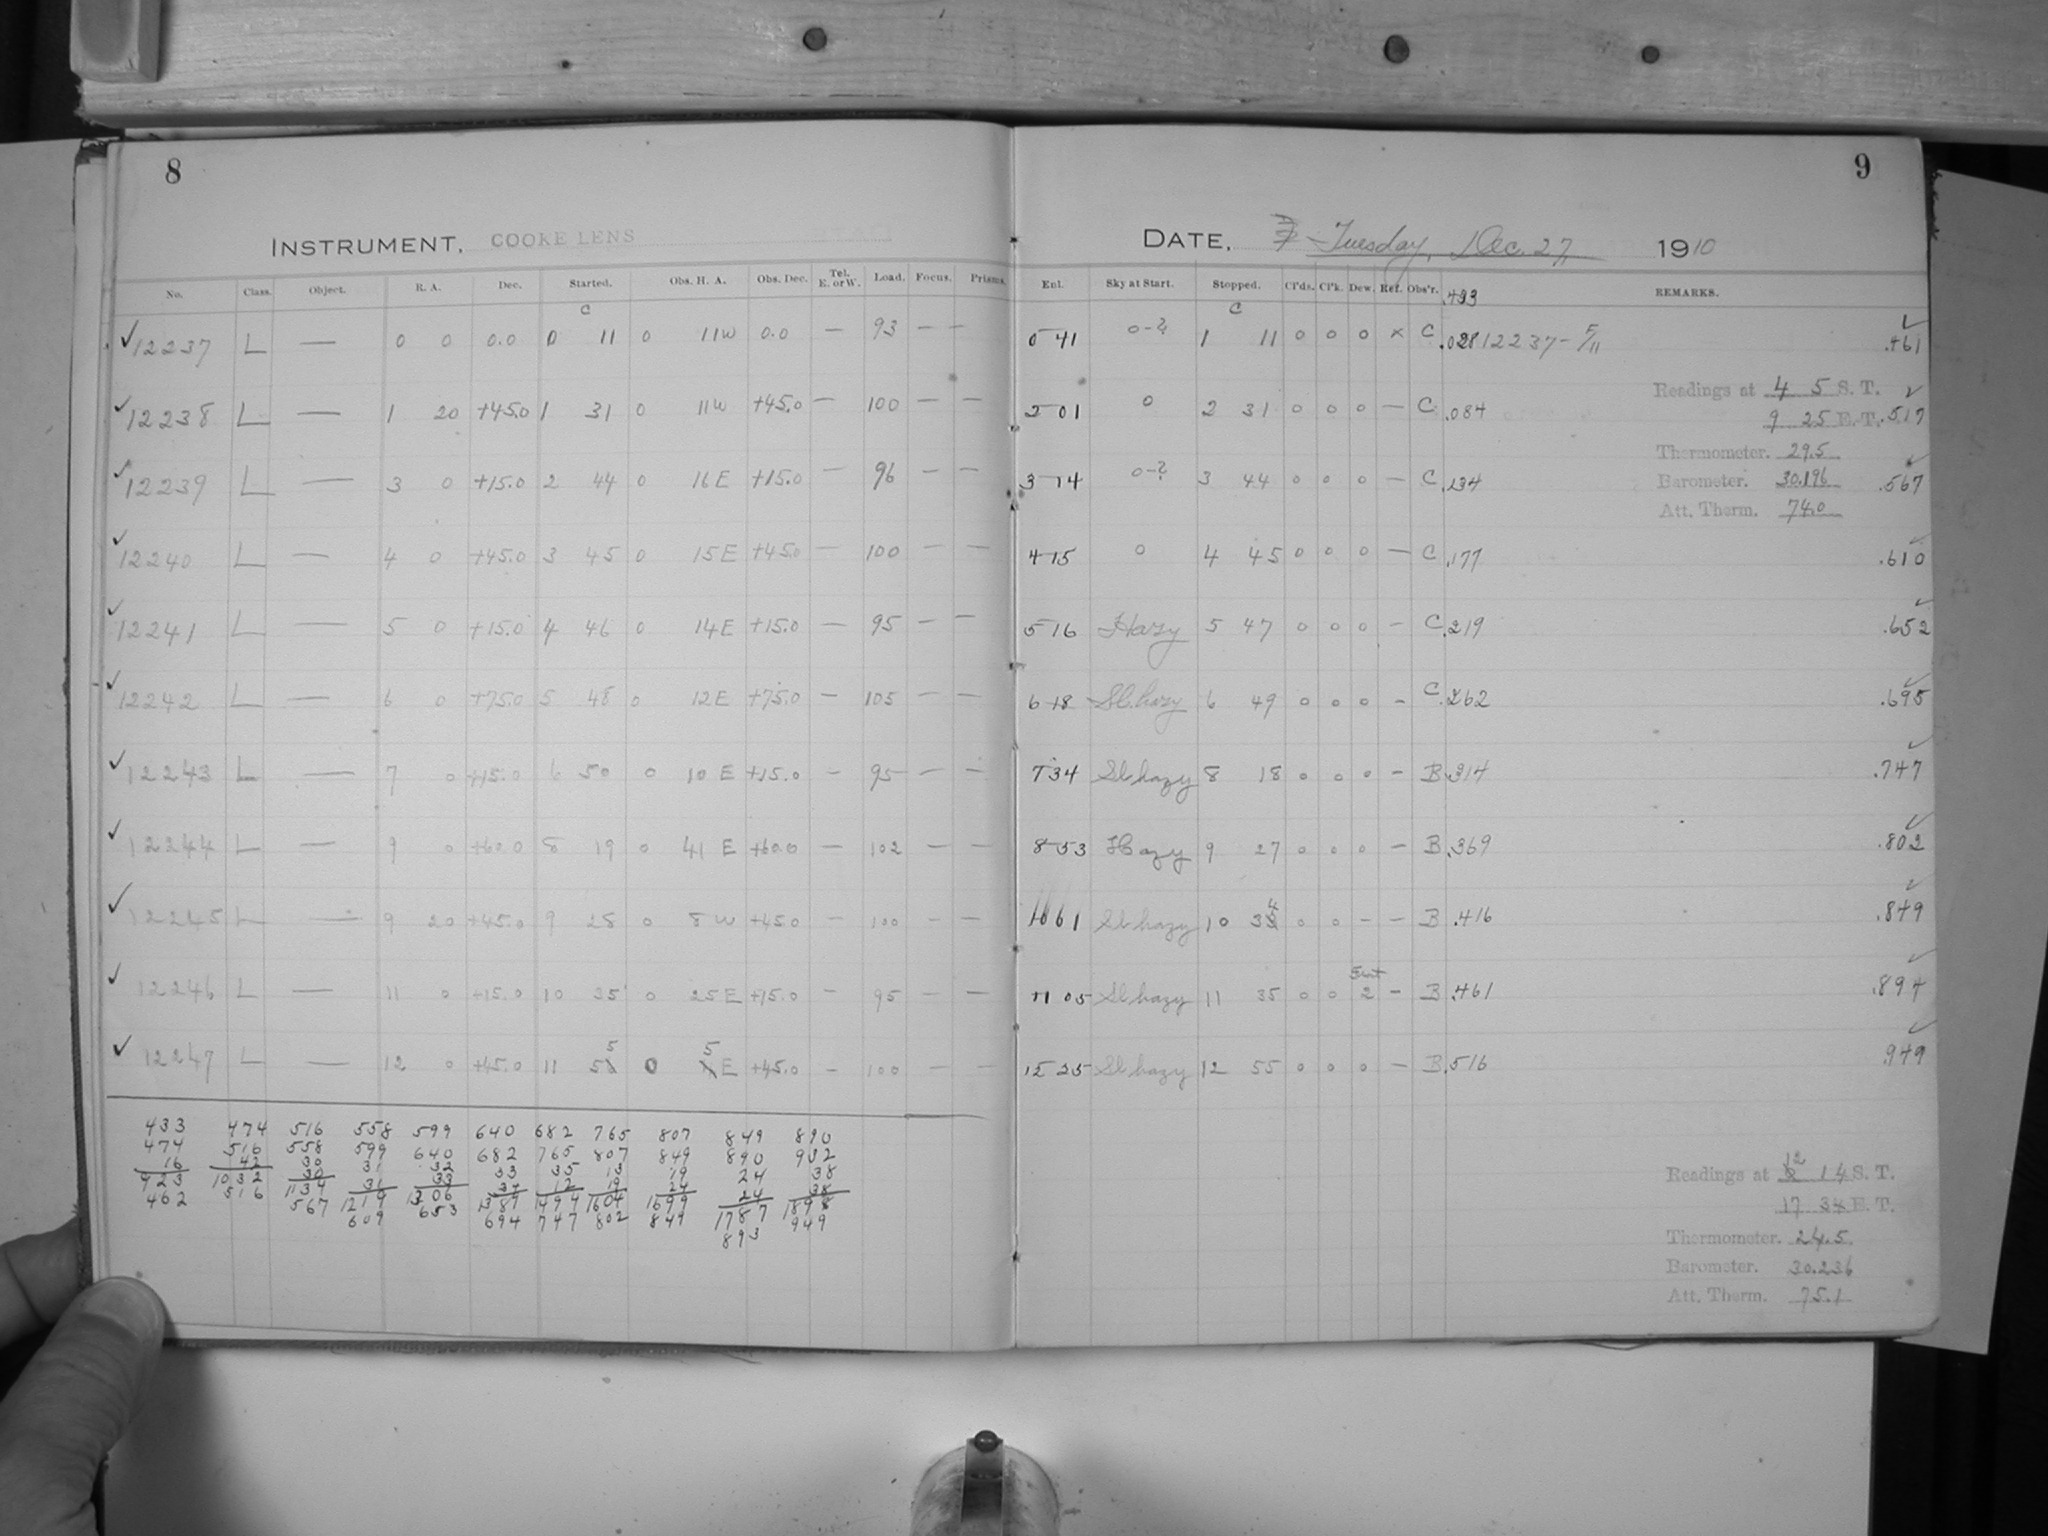 8
INSTRUMENT, COOKE LENS
No. Class. Object. R. A. Dec. Started. Obs. H. A. Obs. Dec. Tel. E. or W. Load. Focus. Prisms.
C
12237 L — 0 0 0.0 0 11 0 11W 0.0 — 93 — —
12238 L — 1 20 +45.0 1 31 0 11W +45.0 — 100 — —
12239 L — 3 0 +15.0 2 44 0 16E +15.0 — 96 — —
12240 L — 4 0 +45.0 3 45 0 15E +45.0 — 100 — —
12241 L — 5 0 +15.0 4 46 0 14E +15.0 — 95 — —
12242 L — 6 0 +75.0 5 48 0 12E +75.0 — 105 — —
12243 L — 7 0 +15.0 6 50 0 10 E +15.0 — 95 — —
12244 L — 9 0 +60.0 8 19 0 41 E +60.0 — 102 — —
12245 L — 9 20 +45.0 9 28 0 8 W +45.0 — 100 — —
12246 L — 11 0 +15.0 10 35 0 25 E +15.0 — 95 — —
12247 L — 12 0 +45.0 11 55 0 5 E +45.0 — 100 — —
433 474 516 558 599 640 682 765 807 849 890
474 516 558 599 640 682 765 807 849 890 932
16 42 30 31 32 33 35 13 19 24 38
30 31 33 34 12 19 24 24 38
923 1032 1134 1219 1306 1389 1494 1604 1699 1787 1898
462 516 567 609 653 694 747 802 849 893 949
9
DATE, Tuesday, Dec. 27, 1910
Enl. Sky at Start. Stopped. Cl'ds. Cl'k. Dew. Ref. Obs'r. .433 REMARKS.
C
0 41 0-? 1 11 0 0 0 x C .028 12237 - F/11 .461
Readings at 4 5 S. T.
2 01 0 2 31 0 0 0 — C .084 .517
9 25 E. T.
Thermometer. 29.5
3 14 0-? 3 44 0 0 0 — C .134 .567
Barometer. 30.196
Att. Therm. 74.0
4 15 0 4 45 0 0 0 — C .177 .610
5 16 Hazy 5 47 0 0 0 — C .219 .652
6 18 Sl. hazy 6 49 0 0 0 — C .262 .695
7 34 Sl hazy 8 18 0 0 0 — B .314 .747
8 53 Hazy 9 27 0 0 0 — B .369 .802
Sl hazy 10 34 0 0 — — B .416 .849
11 05 Sl hazy 11 35 0 0 2 — B .461 .894
12 25 Sl hazy 12 55 0 0 0 — B .516 .949
Readings at 12 14 S. T.
17 34 E. T.
Thermometer. 24.5
Barometer. 30.236
Att. Therm. 75.1